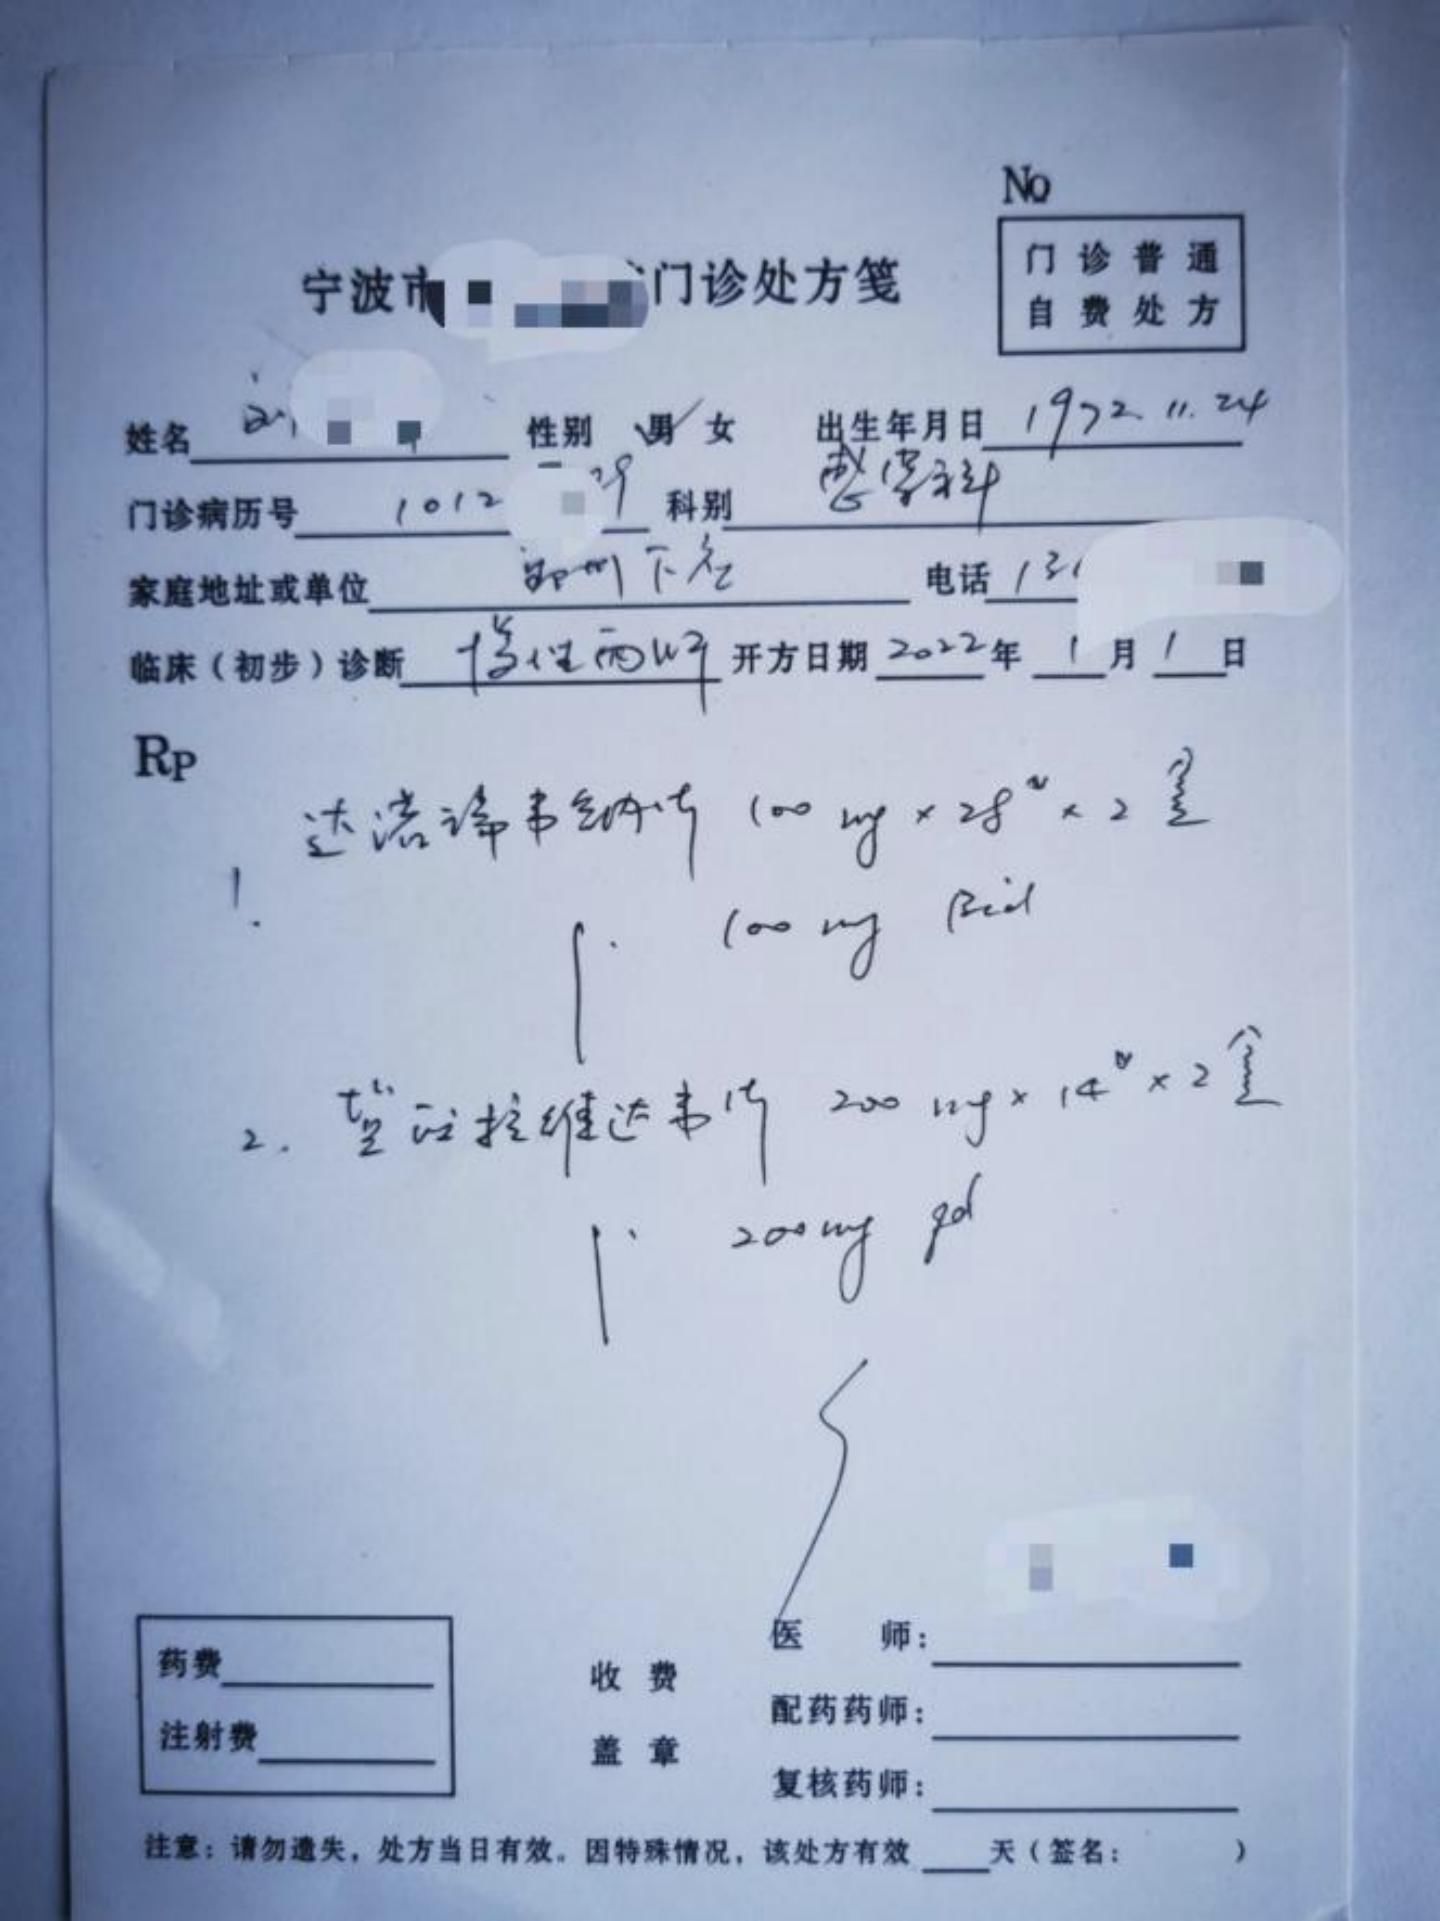 No
门诊普通
自费处方
宁波市 门诊处方笺
姓名 刘 性别 男 女 出生年月日 1972.11.24
门诊病历号 1012 29 科别 感染科
家庭地址或单位 鄞州下应 电话 131
临床(初步)诊断 慢性丙肝 开方日期 2022年 1月1日
Rp
1. 达诺瑞韦钠片 100mg×28 ×2盒
100mg Bid
2. 盐酸拉维达韦片 200mg×14 ×2盒
200mg qd
药费
注射费
收费
盖章
医 师:
配药药师:
复核药师:
注意:请勿遗失,处方当日有效。因特殊情况,该处方有效 天(签名: )